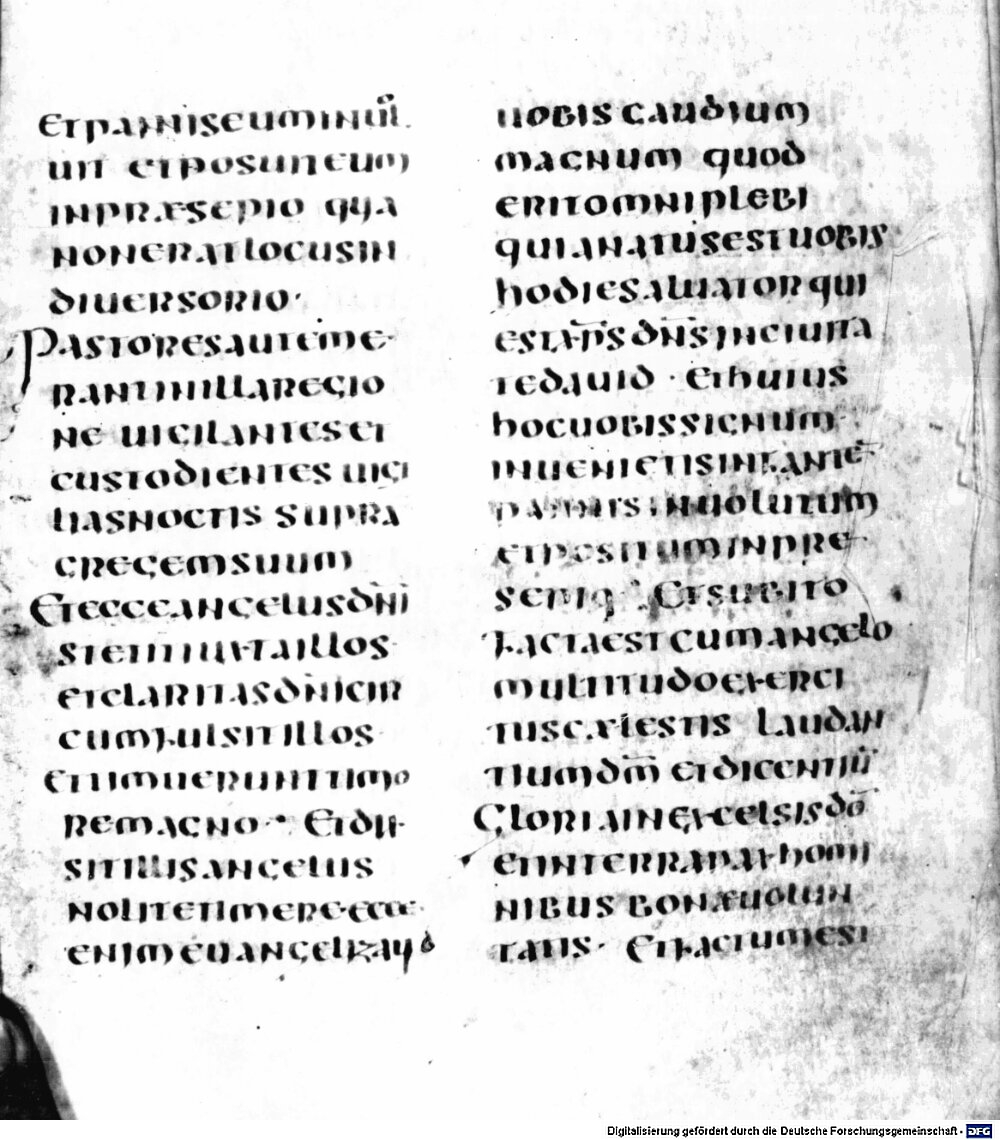 etpanniseuminuol
uit etposuiteum
inpraesepio quia
noneratlocusin
diuersorio·
Pastoresauteme
rantinillaregio
ne uigilanteset
custodientes uigi
liasnoctis supra
gregemsuum
Etecceangelusdn̄i
stetitiuxtaillos
etclaritasdn̄icir
cumfulsitillos
ettimuerunttimo
remagno· Etdix
sitillisangelus
nolitetimereecce
enimeuangelizauo
uobis gaudium
magnum quod
eritomniplebi
quianatusestuobis
hodiesaluatorqui
estxp̄sdn̄sinciuita
tedauid · ethuius
hocuobissignum
inuenietisinfantē
pannis inuolutum
etposituminpre
sepio· Etsubito
factaestcumangelo
multitudoexerci
tuscaelestis laudan
tiumdm̄ etdicentiū
Gloriainexcelsisdō
etinterrapaxhomi
nibus bonaeuolun
tatis· Etfactumest
Digitalisierung gefördert durch die Deutsche Forschungsgemeinschaft - DFG